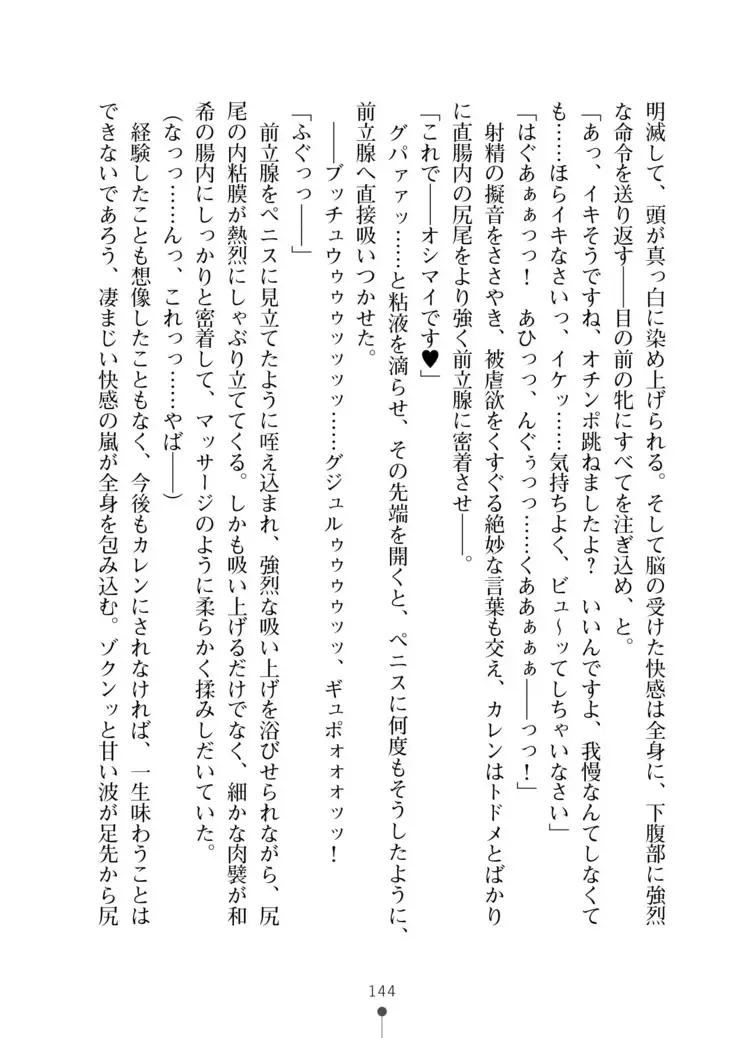 明滅して、頭が真っ白に染め上げられる。そして脳の受けた快感は全身に、下腹部に強烈
な命令を送り返す――目の前の牝にすべてを注ぎ込め、と。
「あっ、イキそうですね、オチンポ跳ねましたよ？　いいんですよ、我慢なんてしなくて
も……ほらイキなさいっ、イケッ……気持ちよく、ビュ～ッてしちゃいなさい」
「はぐあぁぁっっ！　あひっっ、んぐぅっっ……くああぁぁぁ――っっ！」
射精の擬音をささやき、被虐欲をくすぐる絶妙な言葉も交え、カレンはトドメとばかり
に直腸内の尻尾をより強く前立腺に密着させ――。
「これで――オシマイです♥」
グパァァッ……と粘液を滴らせ、その先端を開くと、ペニスに何度もそうしたように、
前立腺へ直接吸いつかせた。
――ブッチュウゥゥゥッッッッ……グジュルゥゥゥゥッッ、ギュポォォォォッッ！
「ふぐっっ――」
前立腺をペニスに見立てたように咥え込まれ、強烈な吸い上げを浴びせられながら、尻
尾の内粘膜が熱烈にしゃぶり立ててくる。しかも吸い上げるだけでなく、細かな肉襞が和
希の腸内にしっかりと密着して、マッサージのように柔らかく揉みしだいていた。
（なっっ……んっ、これっっ……やば――）
経験したことも想像したこともなく、今後もカレンにされなければ、一生味わうことは
できないであろう、凄まじい快感の嵐が全身を包み込む。ゾクンッと甘い波が足先から尻
144